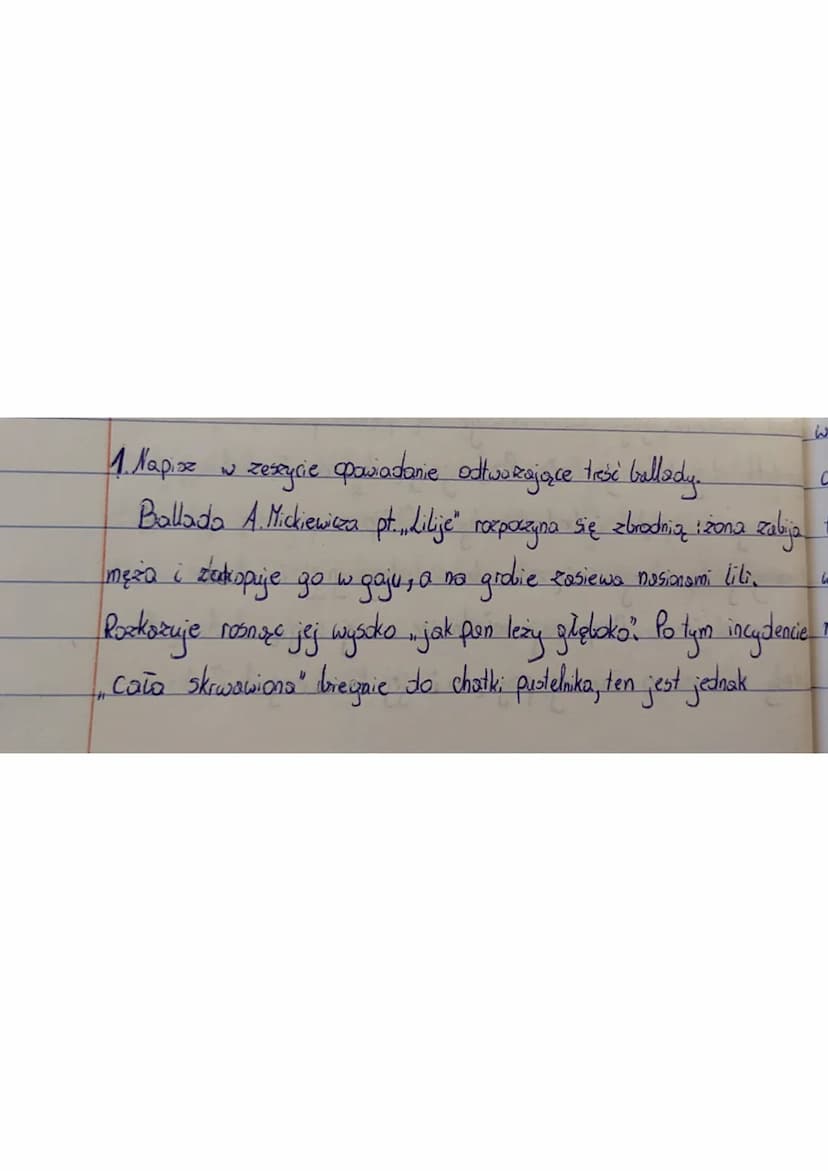 1. Napisz w zeszycie opowiadanie odtwarzające treść ballady.
Ballada A. Mickiewicza pt. „Lilije" rozpoczyna się zbrodnią: żona zabija
męża i zakopuje go w gaju, a na grobie zasiewa nasionami lili.
Rozkazuje rosnąc jej wysoko „jak pan leży głęboko". Po tym incydencie
„Cała skrwawiona" biegnie do chatki pustelnika, ten jest jednak